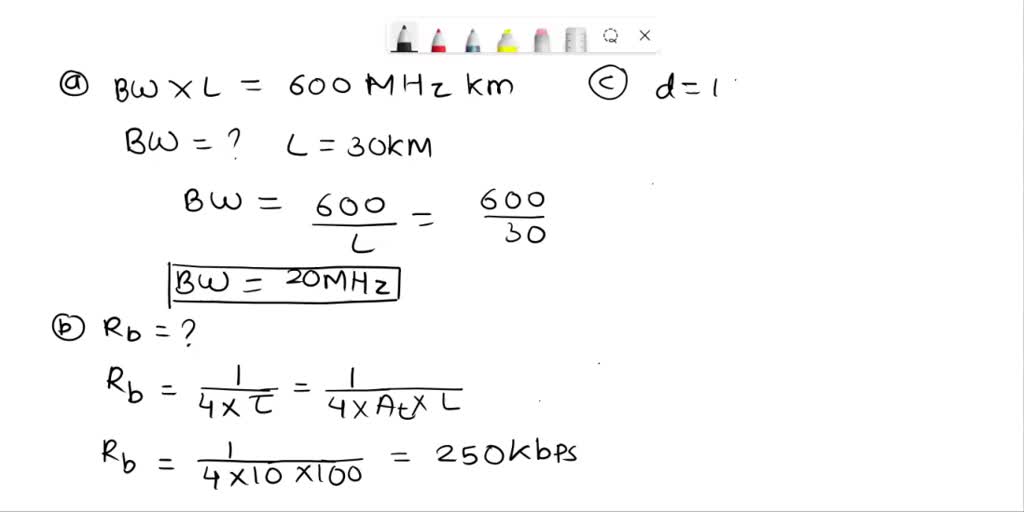 ⓐ BW X L = 600 MHz km
BW = ? L = 30KM
BW = 600/L = 600/30
BW = 20MHz
ⓑ Rb = ?
Rb = 1/4 X τ = 1/4 X At X L
Rb = 1/4 X 10 X 100 = 250Kbps
ⓒ d = 1